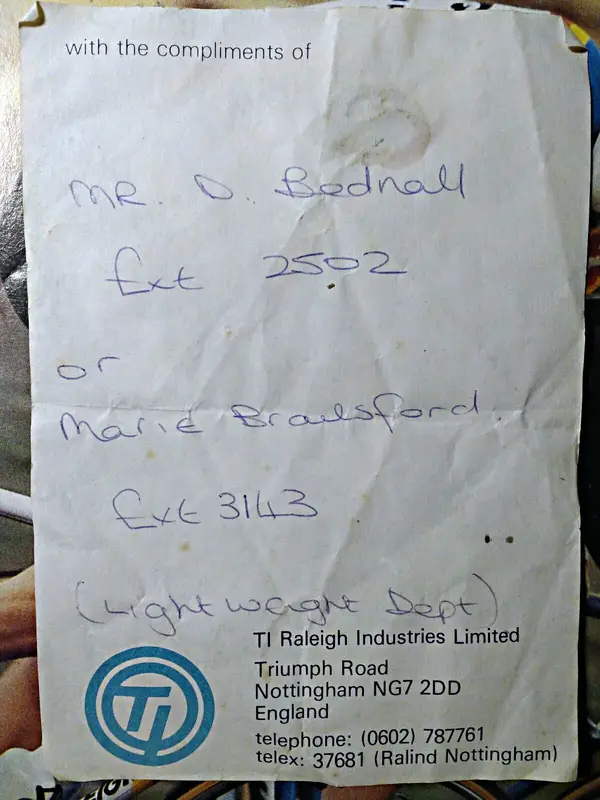 with the compliments of
MR. D. Bednall
Ext 2502
or
Marie Brailsford
Ext 3143
(Lightweight Dept)
TI Raleigh Industries Limited
Triumph Road
Nottingham NG7 2DD
England
telephone: (0602) 787761
telex: 37681 (Ralind Nottingham)
TI